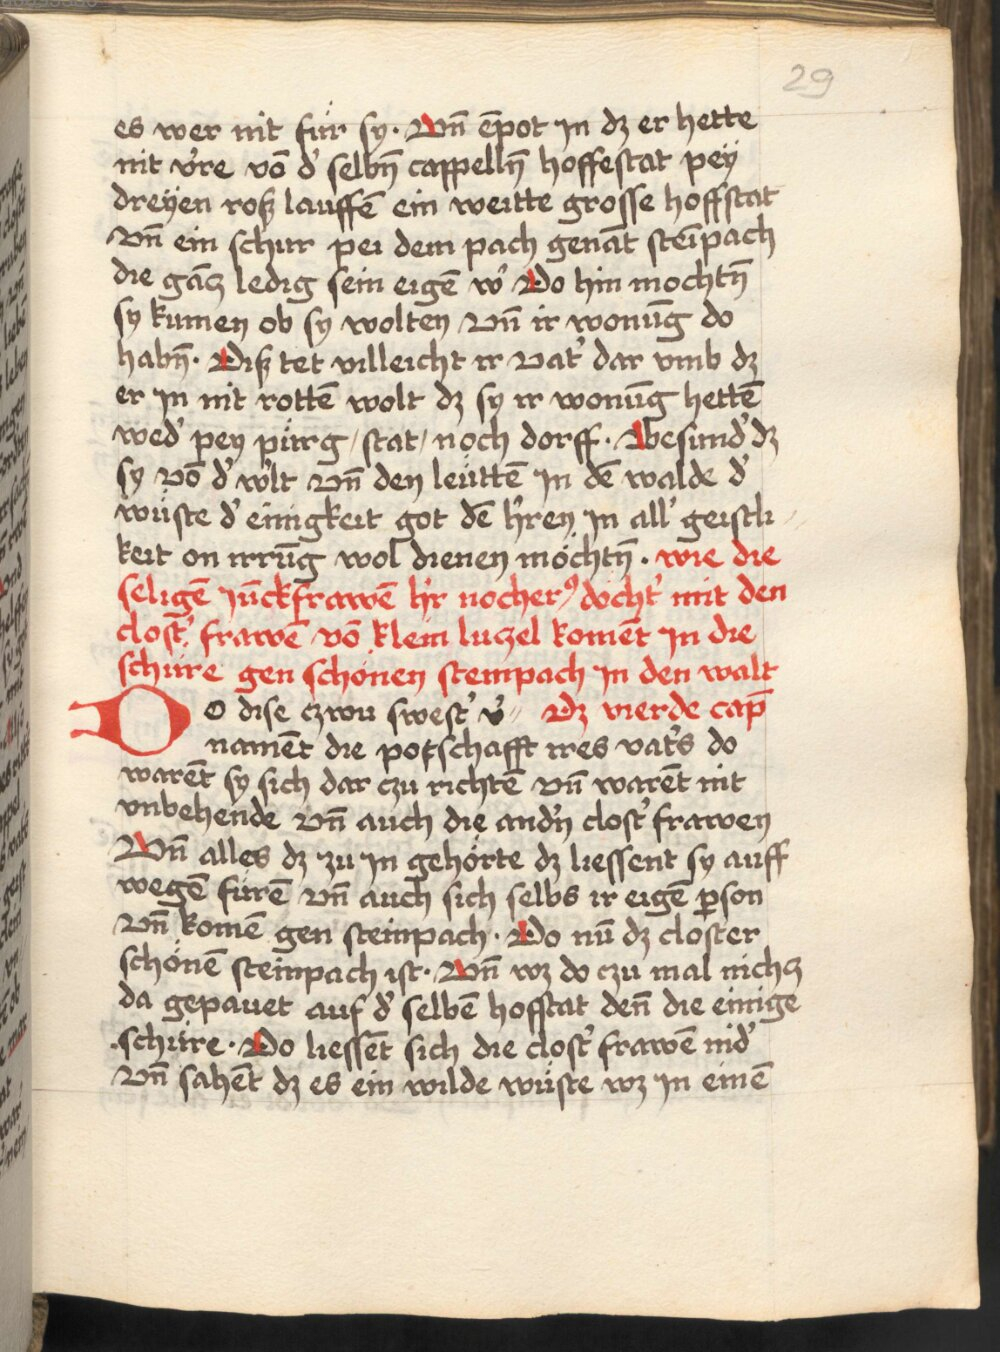 29
es wer nit für sy. Vn̄ ēpot in dz er hette
nit v̕re vō d̕ selbn̄ cappelln̄ hoffestat pey
dreyen roß lauffē ein weitte grosse hoffstat
Vn̄ ein schur pei dem pach genāt steīpach
die gācz ledig sein eigē w̕ Do hin mochtn̄
sy kumen ob sy wolten Vn̄ ir wonūg do
habn̄. Diß tet villeicht ir Vat̕ dar vmb dz
er in nit rottē wolt dz sy ir wonūg hettē
wed̕ pey pürg / stat / noch dorff. Besund̕ dz
sy vō d̕ w̕lt Vn̄ den leüttē in dē walde d̕
wüste d̕ einigkeit got dē h̕ren in all̕ geistli
keit on irrūg wol dienen möchtn̄. wie die
seligē jūckfrawē h̕r nocherꝰ docht̕ mit den
clost̕ frawē vō klein luczel komēt in die
schüre gen schönen steinpach in den walt
DO dise czwu swest̕ v̕ Dz vierde cap̄
namēt die potschafft ires vat̕s do
warēt sy sich dar czu richtē Vn̄ warēt nit
vnbehende Vn̄ auch die and̕n clost̕ frawen
Vn̄ alles dz zu in gehörte dz liessent sy auff
wegē fürē Vn̄ auch sich selbs ir eigē ꝑson
Vn̄ komē gen steinpach. Do nū dz closter
schönē steinpach ist. Vn̄ wz do czu mal nichcz
da gepauet auf d̕ selbē hofftat den̄ die einige
schüre. Do liessēt sich die clost̕ frawē nid̕
Vn̄ sahēt dz es ein wilde wüste wz in einē